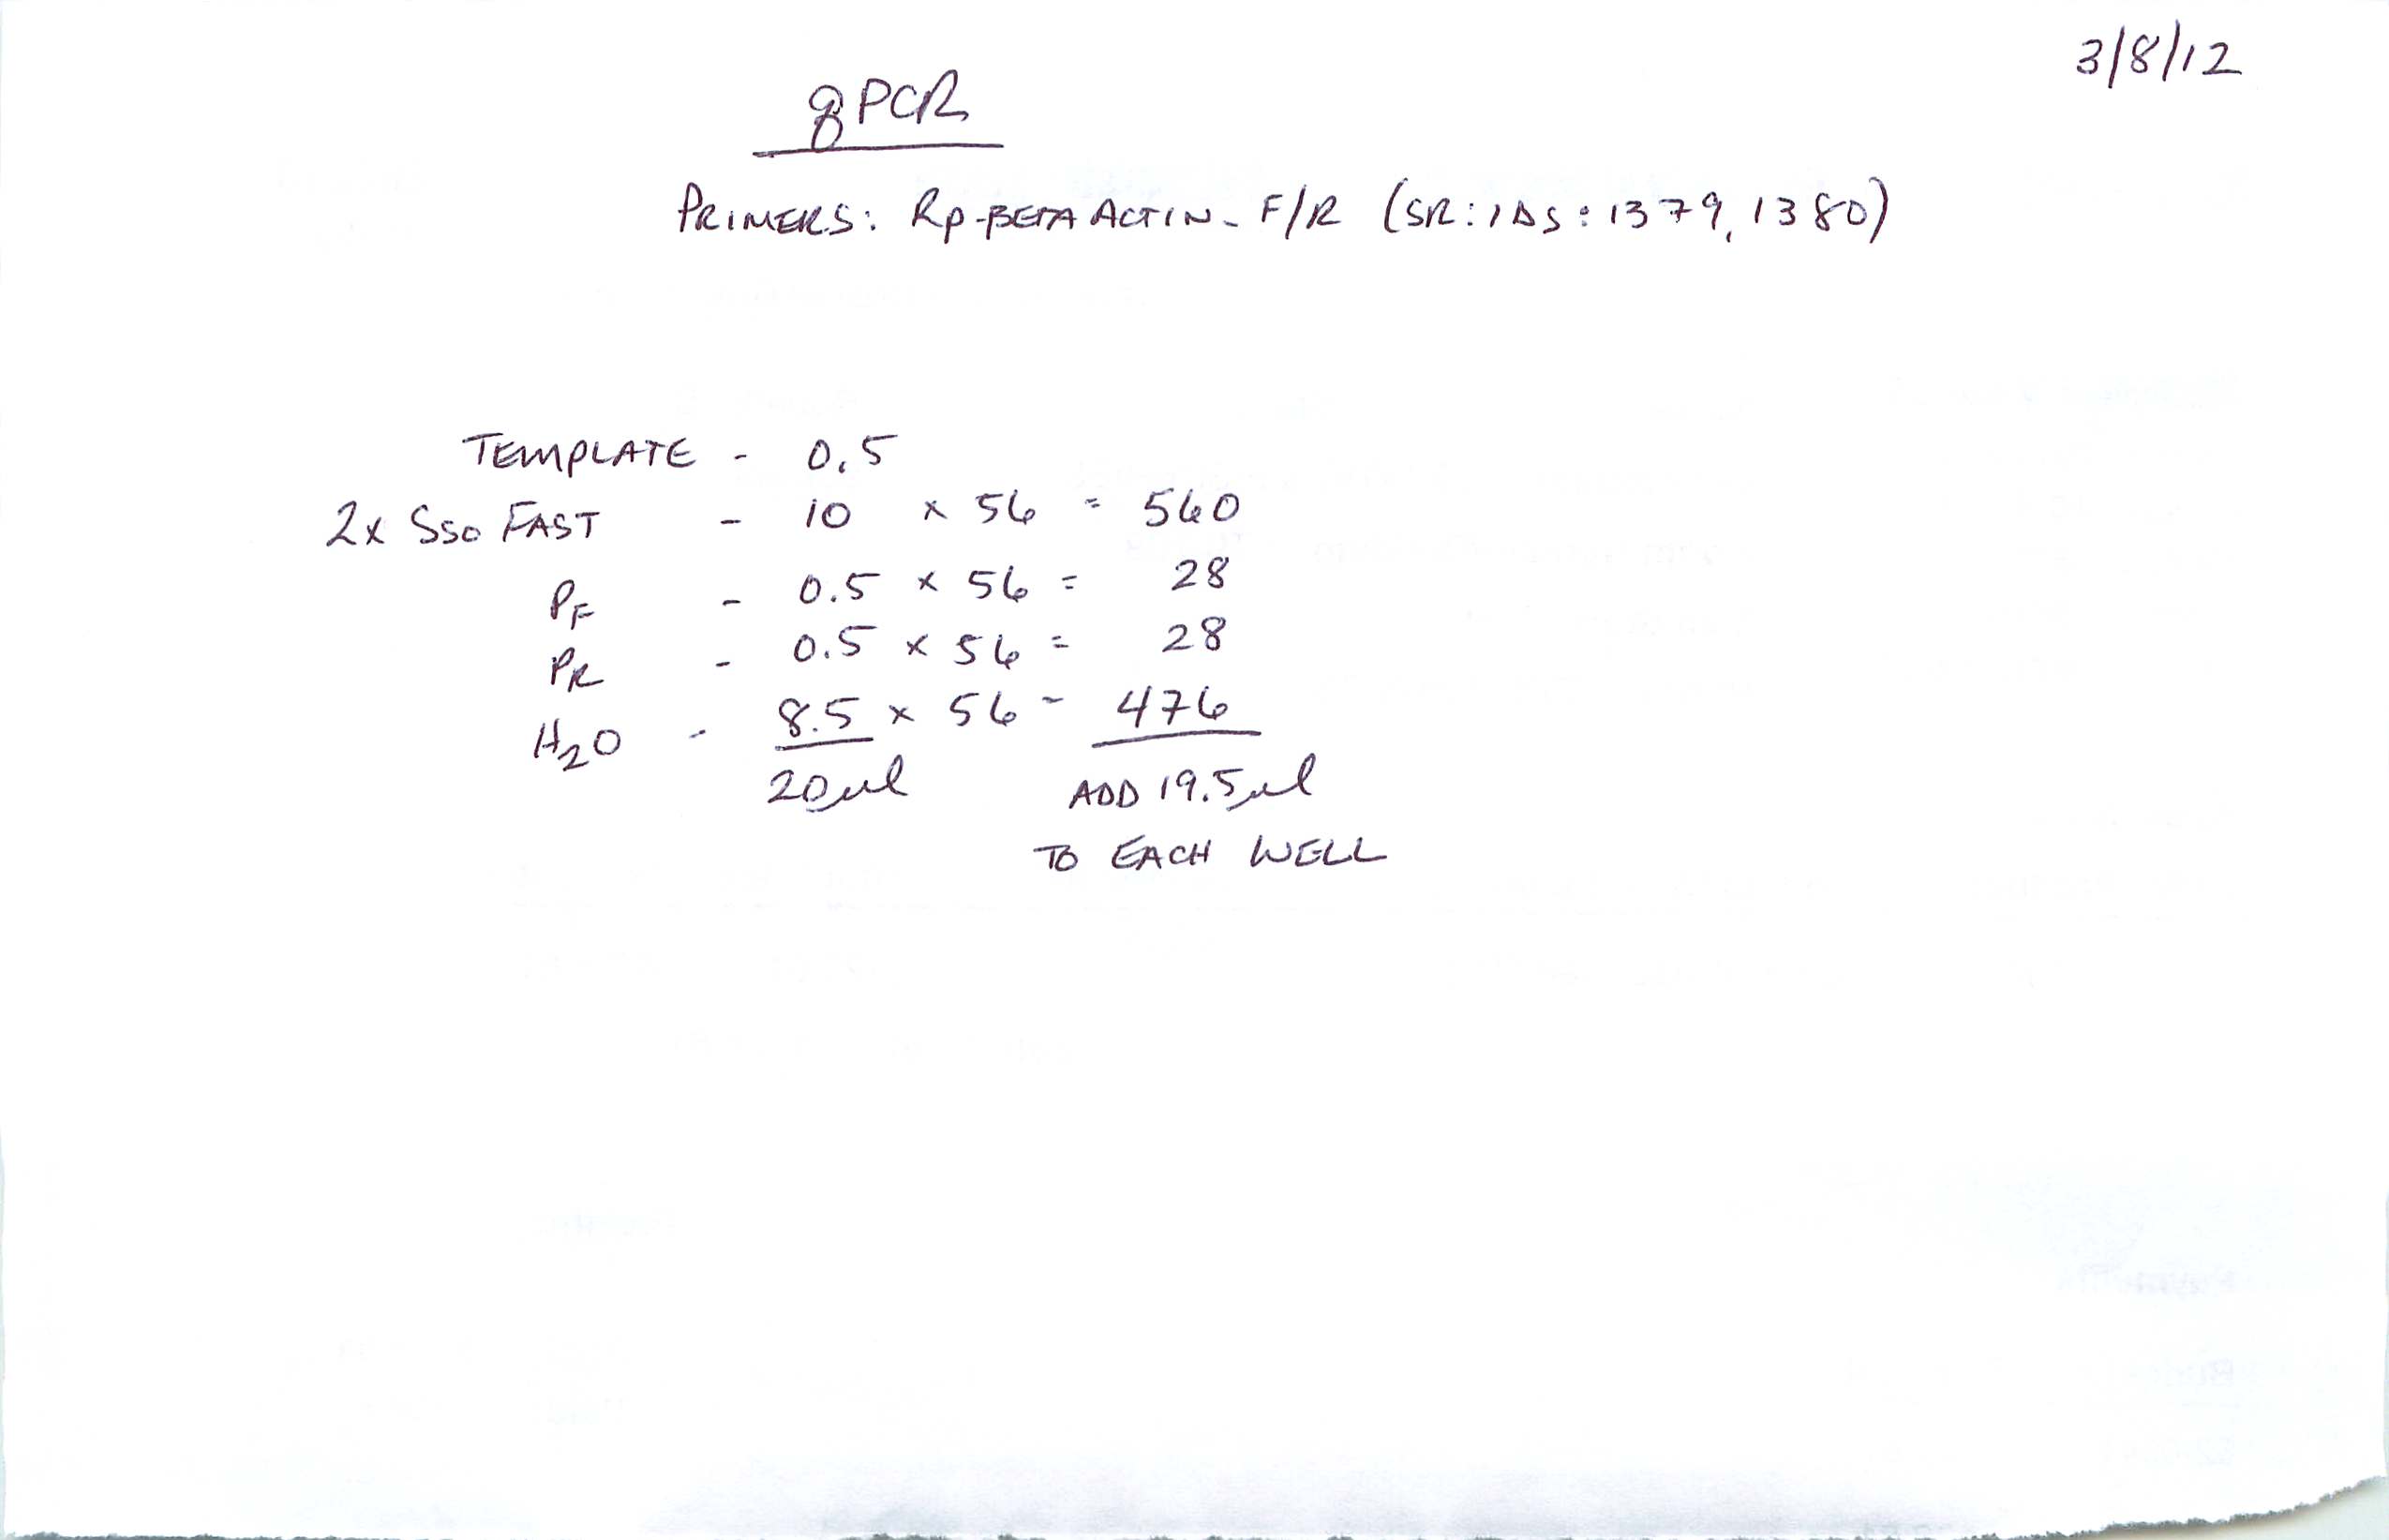 3/8/12
qPCR
PRIMERS: Rp-BETA ACTIN-F/R (SR:IDS: 1379, 1380)
TEMPLATE - 0.5
2x SSO FAST - 10 x 56 = 560
PF - 0.5 x 56 = 28
PR - 0.5 x 56 = 28
H2O - 8.5 x 56 - 476
20ul ADD 19.5ul
TO EACH WELL